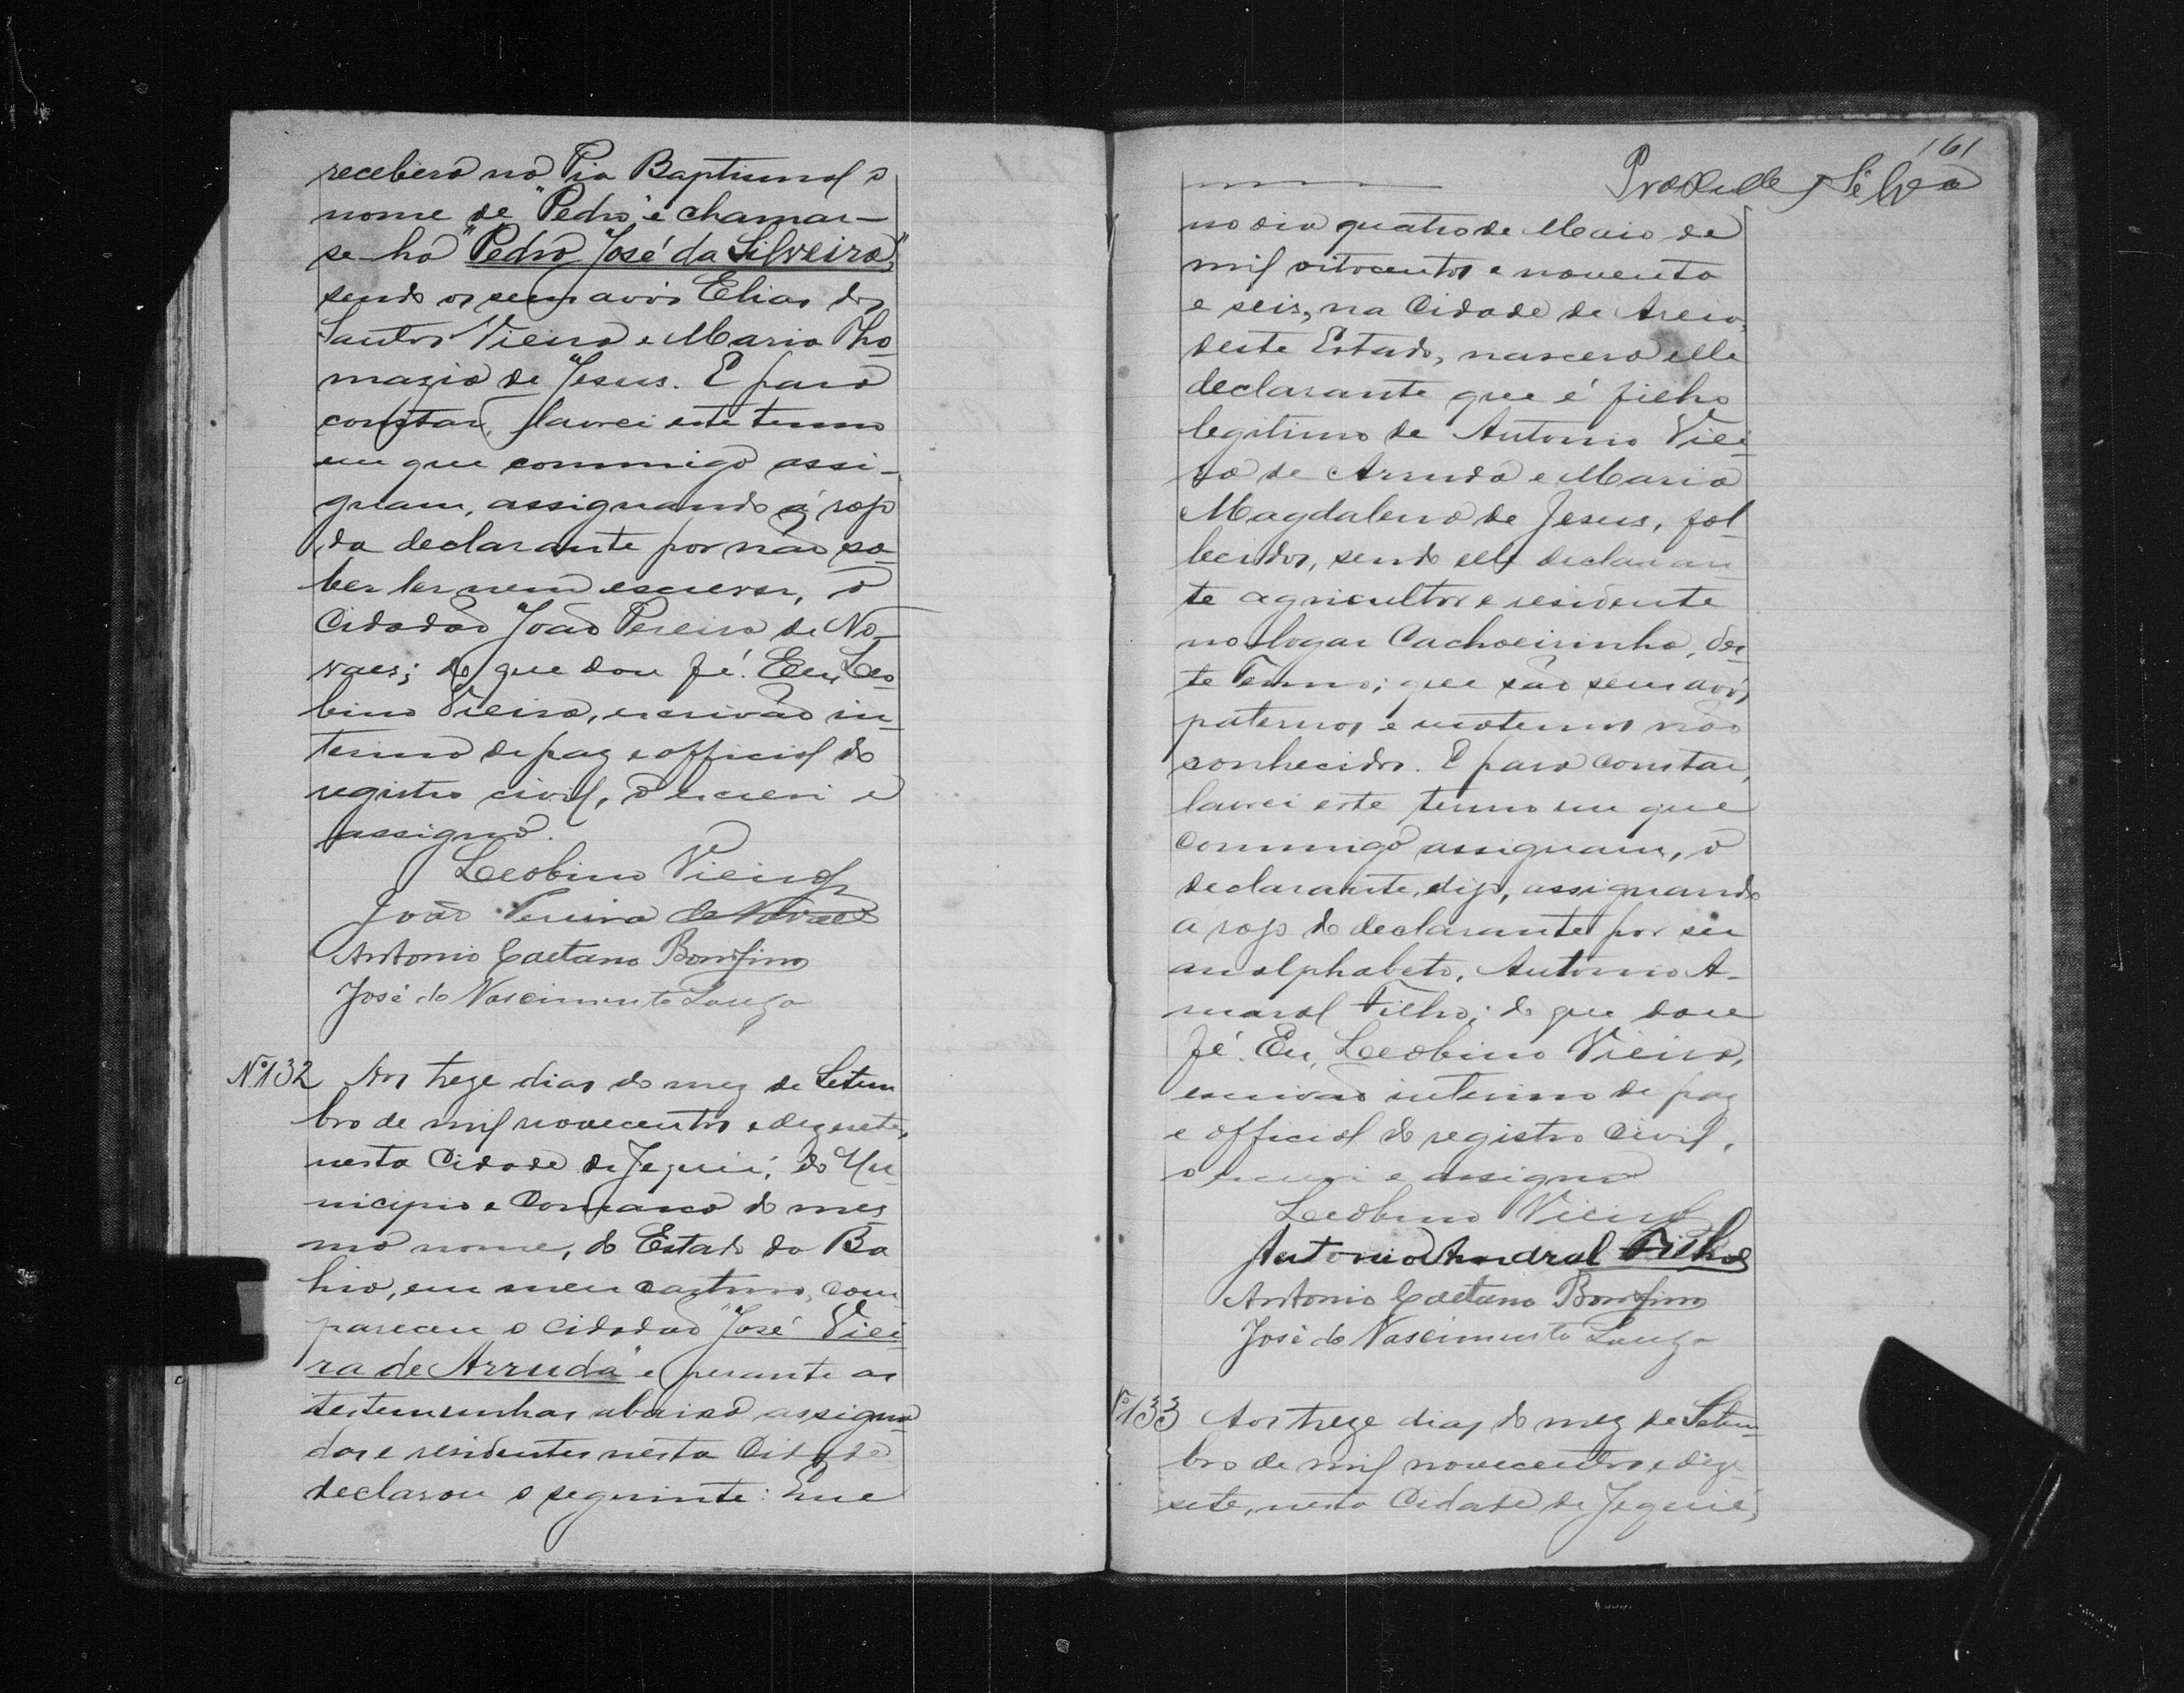 receberá na Pia Baptismal o
nome de "Pedro" e chamar-
se-ha "Pedro José da Silveira",
sendo os seus avós Elias dos
Santos Vieira e Maria Tho-
mazia de Jesus. E para
constar, lavrei este termo
em que commigo assi-
gnam, assignando á rogo
da declarante por não sa-
ber ler nem escrever, o
Cidadão João Pereira de No-
vaes; do que dou fé. Eu, Leo-
bino Vieira, escrivão in-
terino de paz e official do
registro civil, o escrevi e
assigno.
Leobino Vieira
João Pereira de Novaes
Antonio Caetano Bomfim
José do Nascimento Souza
Nº132 Aos treze dias do mez de Setem
bro de mil novecentos e dezesete,
nesta Cidade de Jequié, do Mu-
nicipio e Comarca do mes
mo nome, do Estado da Ba
hia, em meu cartorio, com
pareceu o cidadão "José Viei-
ra de Arruda" e perante as
testemunhas abaixo assigna
das e residentes nesta Cidade
declarou o seguinte: Que
161
Silva
no dia quatro de Maio de
mil oitocentos e noventa
e seis, na Cidade de Areia,
deste Estado, nascera elle
declarante que é filho
legitimo de Antonio Viei-
ra de Arruda e Maria
Magdalena de Jesus, fal-
lecidos, sendo elle declaran-
te agricultor e residente
no logar Cachoeirinha, des-
te Termo; que são seus avós
paternos e maternos não
conhecidos. E para constar,
lavrei este termo em que
commigo assignam, o
declarante, digo, assignando
a rogo do declarante por ser
analphabeto, Antonio A-
maral Filho; do que dou
fé. Eu, Leobino Vieira,
escrivão interino de paz
e official do registro civil,
o escrevi e assigno
Leobino Vieira
Antonio Amaral Filho
Antonio Caetano Bomfim
José do Nascimento Souza
Nº133 Aos treze dias do mez de Setem-
bro de mil novecentos e deze-
sete, nesta Cidade de Jequié,